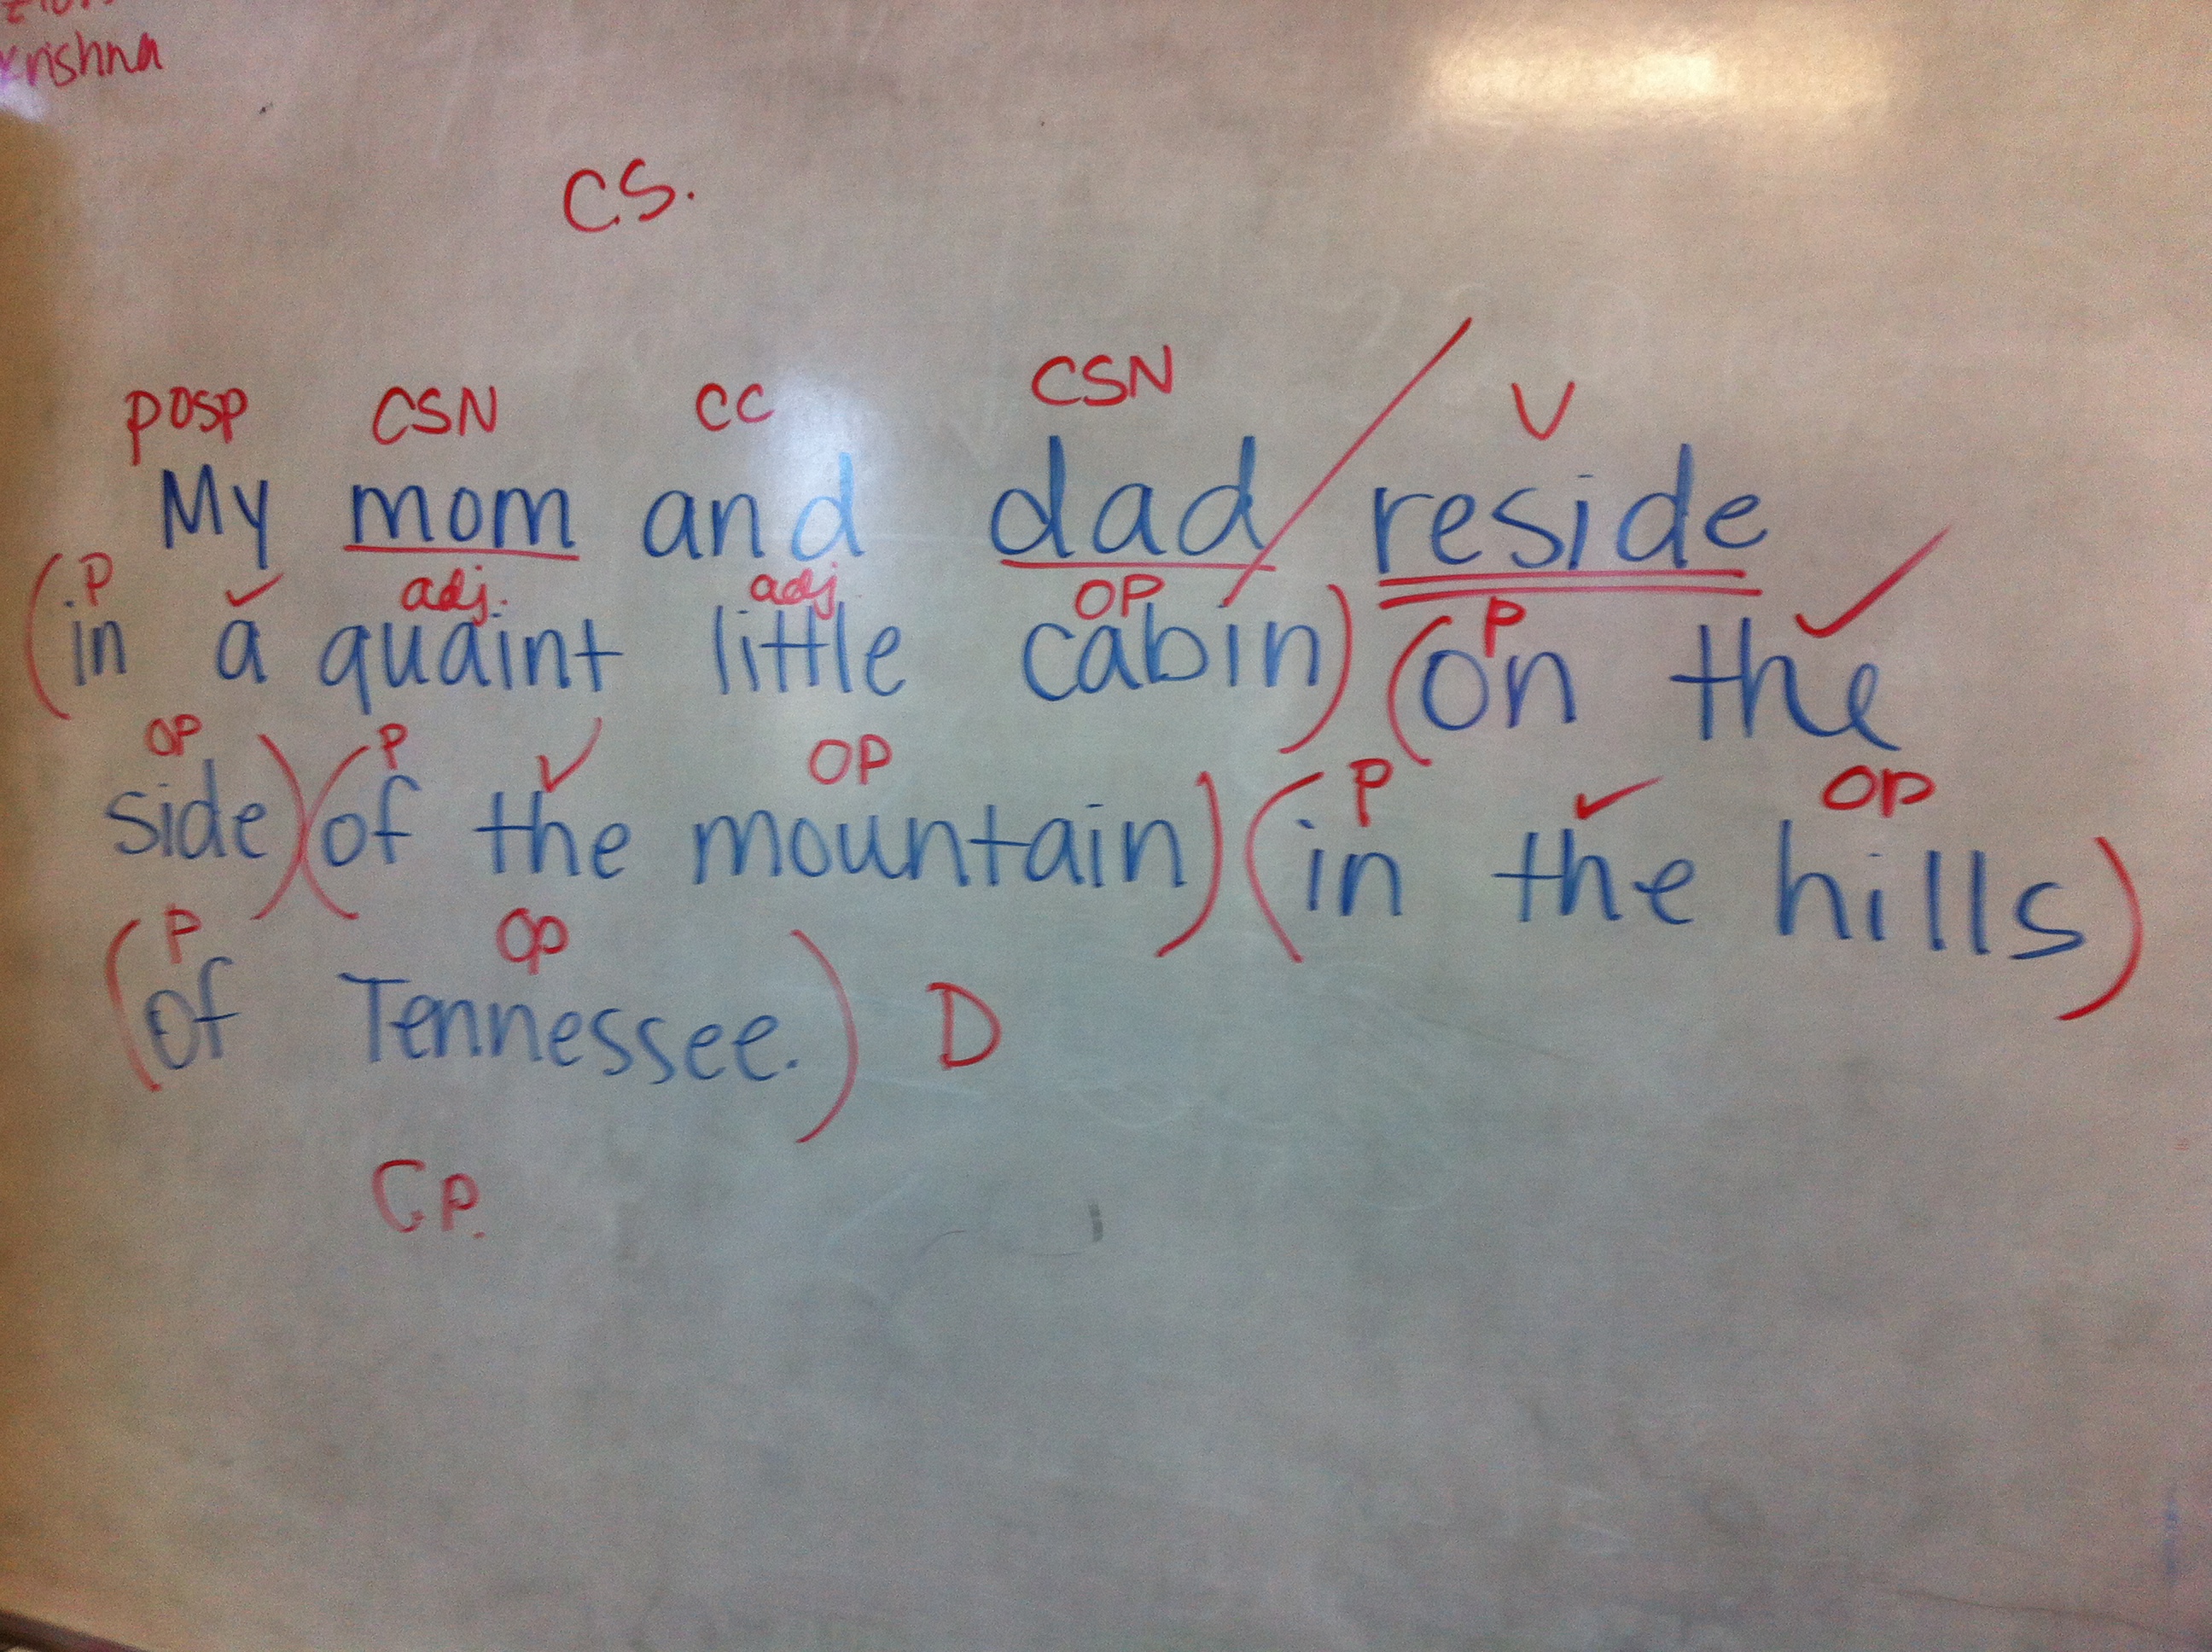 Krishna
CS.
posp CSN CC CSN V
My mom and dad / reside
P ✓ adj. adj. OP P ✓
(in a quaint little cabin) (on the
OP P ✓ OP P ✓ OP
side) (of the mountain) (in the hills)
P OP
(of Tennessee.) D
CP.